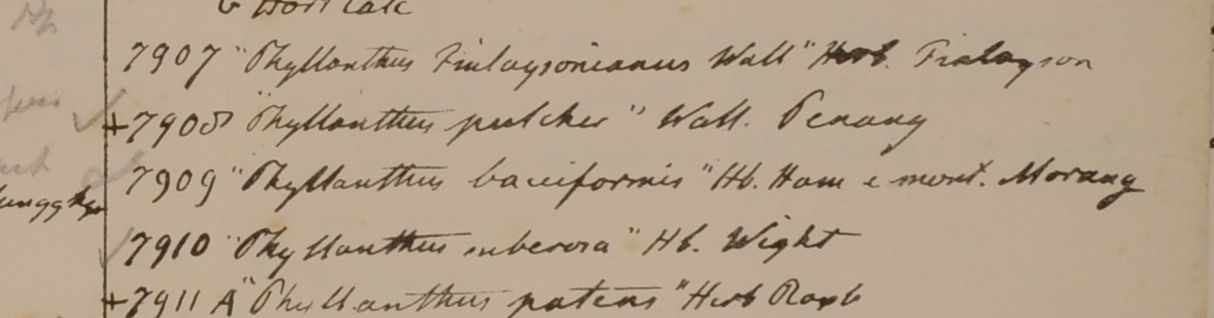 6 Hort Calc
7907 "Phyllanthus Finlaysonianus Wall" Herb. Finlayson
+7908 "Phyllanthus pulcher" Wall. Penang
7909 "Phyllanthus bacciformis" Hb. Ham e mont. Morang
7910 "Phyllanthus suberosa" Hb. Wight
+7911 A "Phyllanthus patens" Herb Roxb